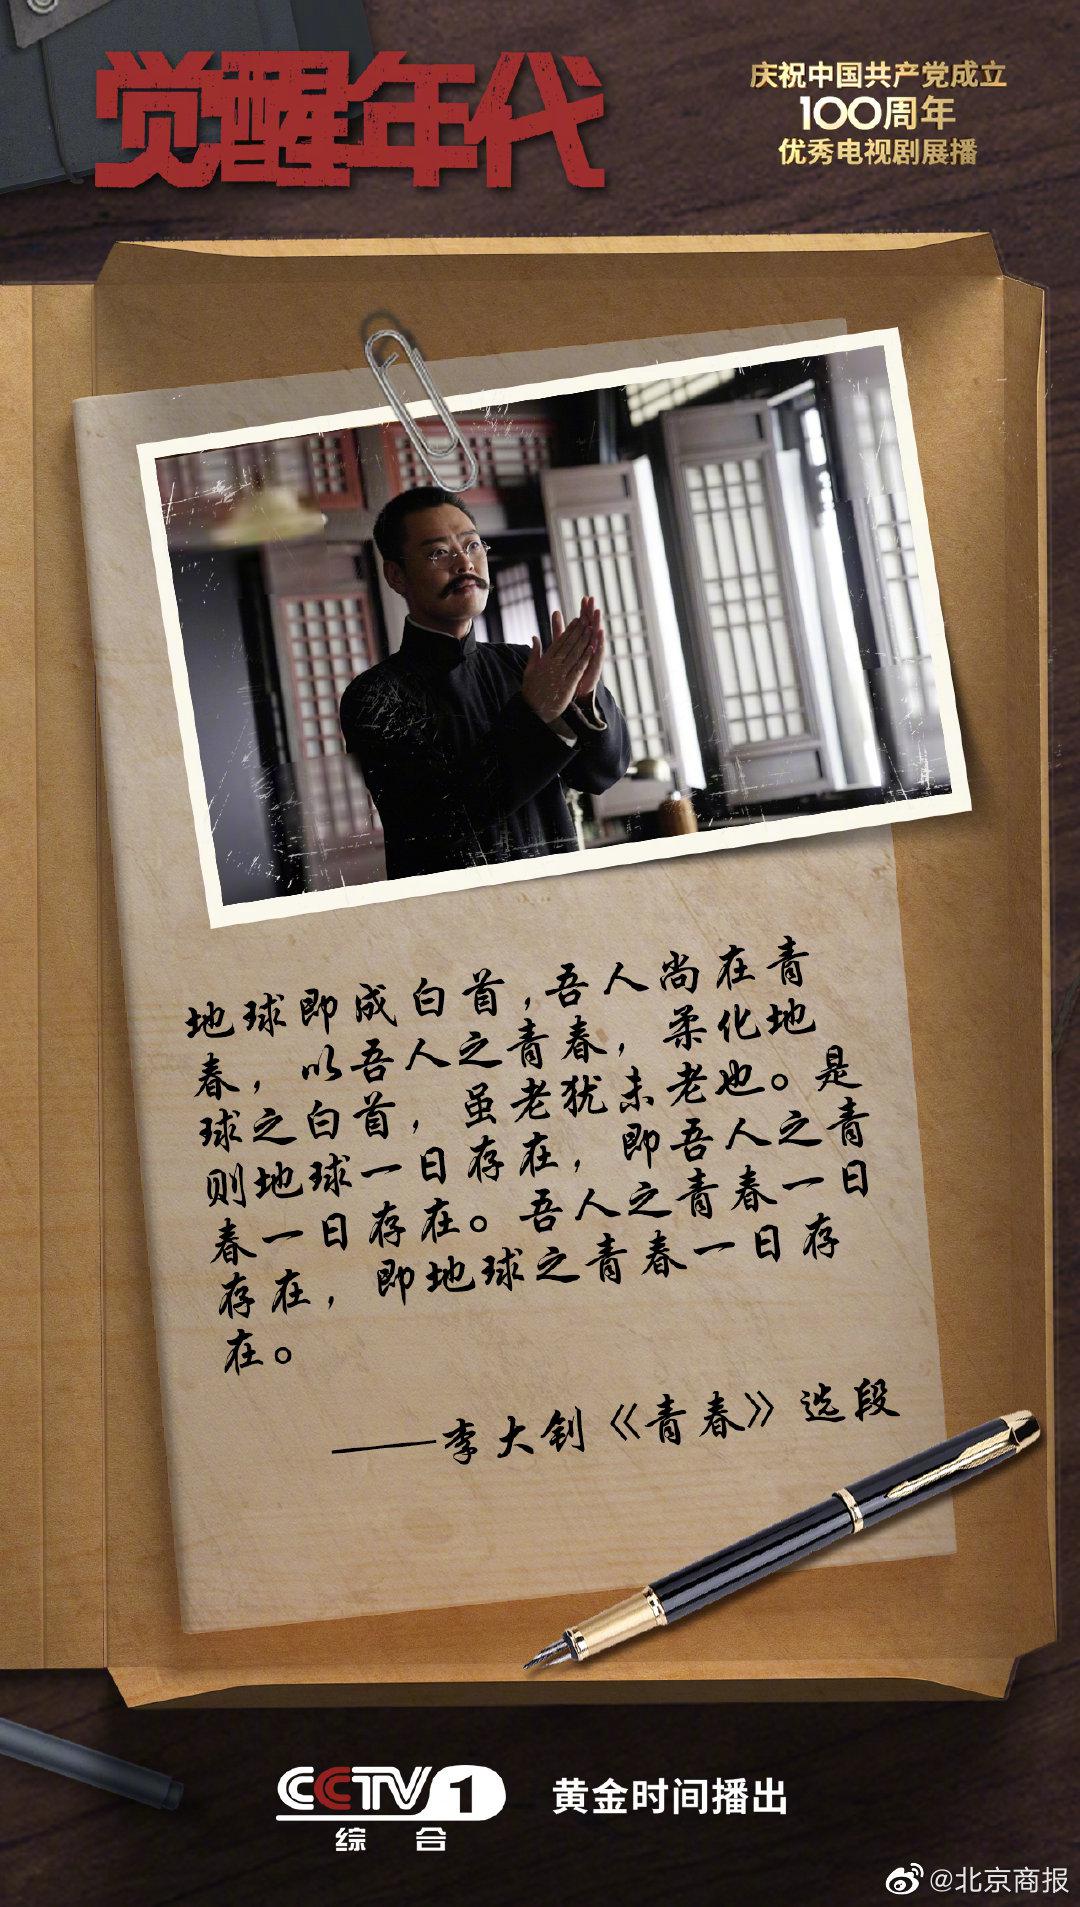 觉醒年代
庆祝中国共产党成立
100周年
优秀电视剧展播
地球即成白首,吾人尚在青
春，以吾人之青春，柔化地
球之白首，虽老犹未老也。是
则地球一日存在，即吾人之青
春一日存在。吾人之青春一日
存在，即地球之青春一日存
在。
——李大钊《青春》选段
CCTV 1
综合
黄金时间播出
@北京商报